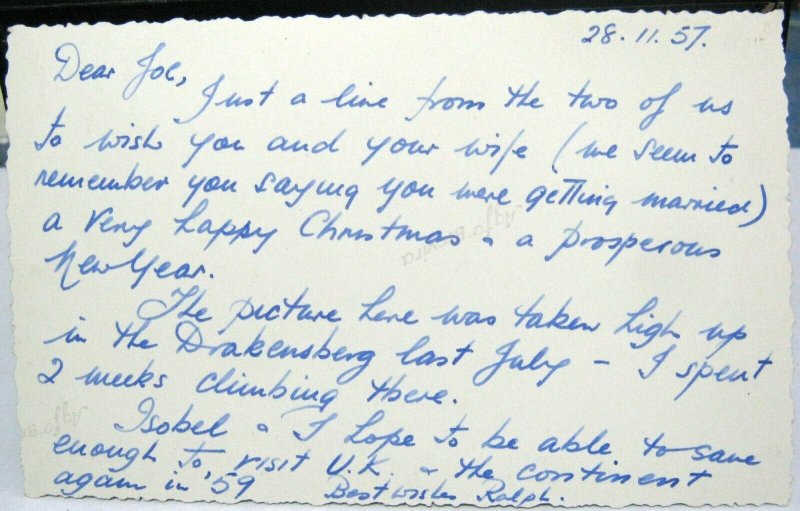 28.11.57.
Dear Joe,
Just a line from the two of us
to wish you and your wife (we seem to
remember you saying you were getting married)
a very happy Christmas & a prosperous
New Year.
The picture here was taken high up
in the Drakensberg last July – I spent
2 weeks climbing there.
Isobel & I hope to be able to save
enough to visit U.K. & the continent
again in '59
Best wishes Ralph.